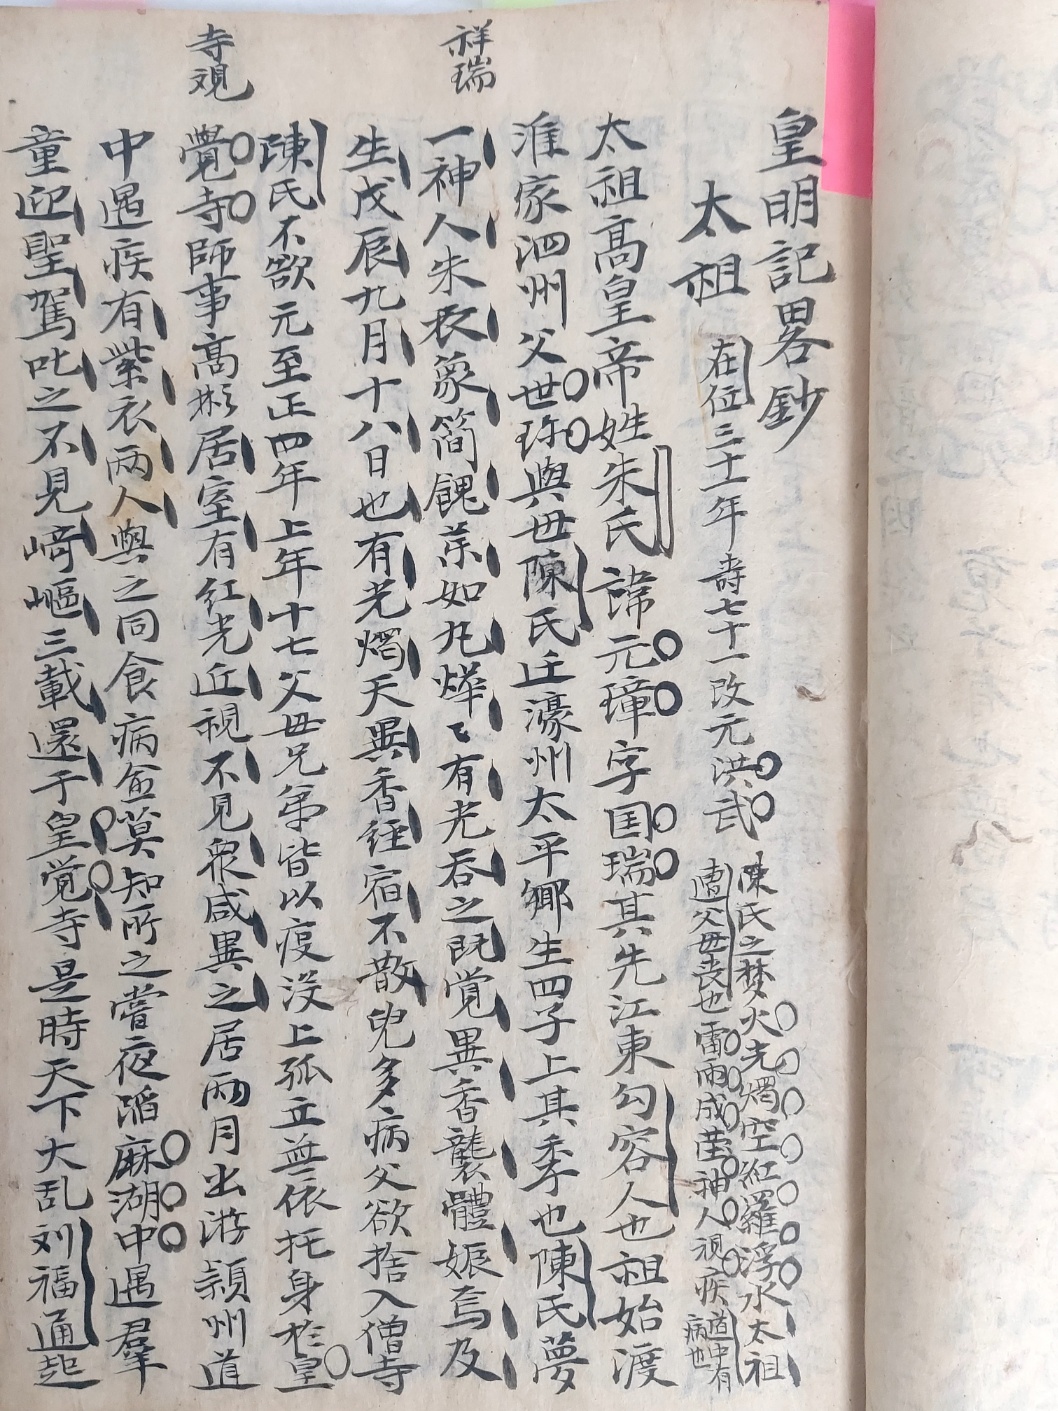 皇明記畧鈔
太祖 在位三十一年壽七十一改元洪武
陳氏之㷊火光燭空紅羅浮水太祖
遭父母丧也雷雨成塋神人視疾道中有
病也
太祖高皇帝姓朱氏諱元璋字国瑞其先江東勾容人也祖始渡
淮家泗州父世珎與母陳氏迁濠州太平鄉生四子上其季也陳氏夢
祥瑞
一神人朱衣象簡餽茶如丸燁〻有光吞之既覚異香襲體娠焉及
生戊辰九月十八日也有光燭天異香経宿不散兒多病父欲捨入僧寺
陳氏不欲元至正四年上年十七父母兄弟皆以疫沒上孤立無依托身於皇
寺覡
覺寺師事髙彬居室有紅光近視不見衆咸異之居兩月出游潁州道
中遇疾有紫衣两人與之同食病愈莫知所之嘗夜蹈麻湖中遇羣
童迎聖駕叱之不見崎嶇三載還于皇覚寺是時天下大乱刘福通起